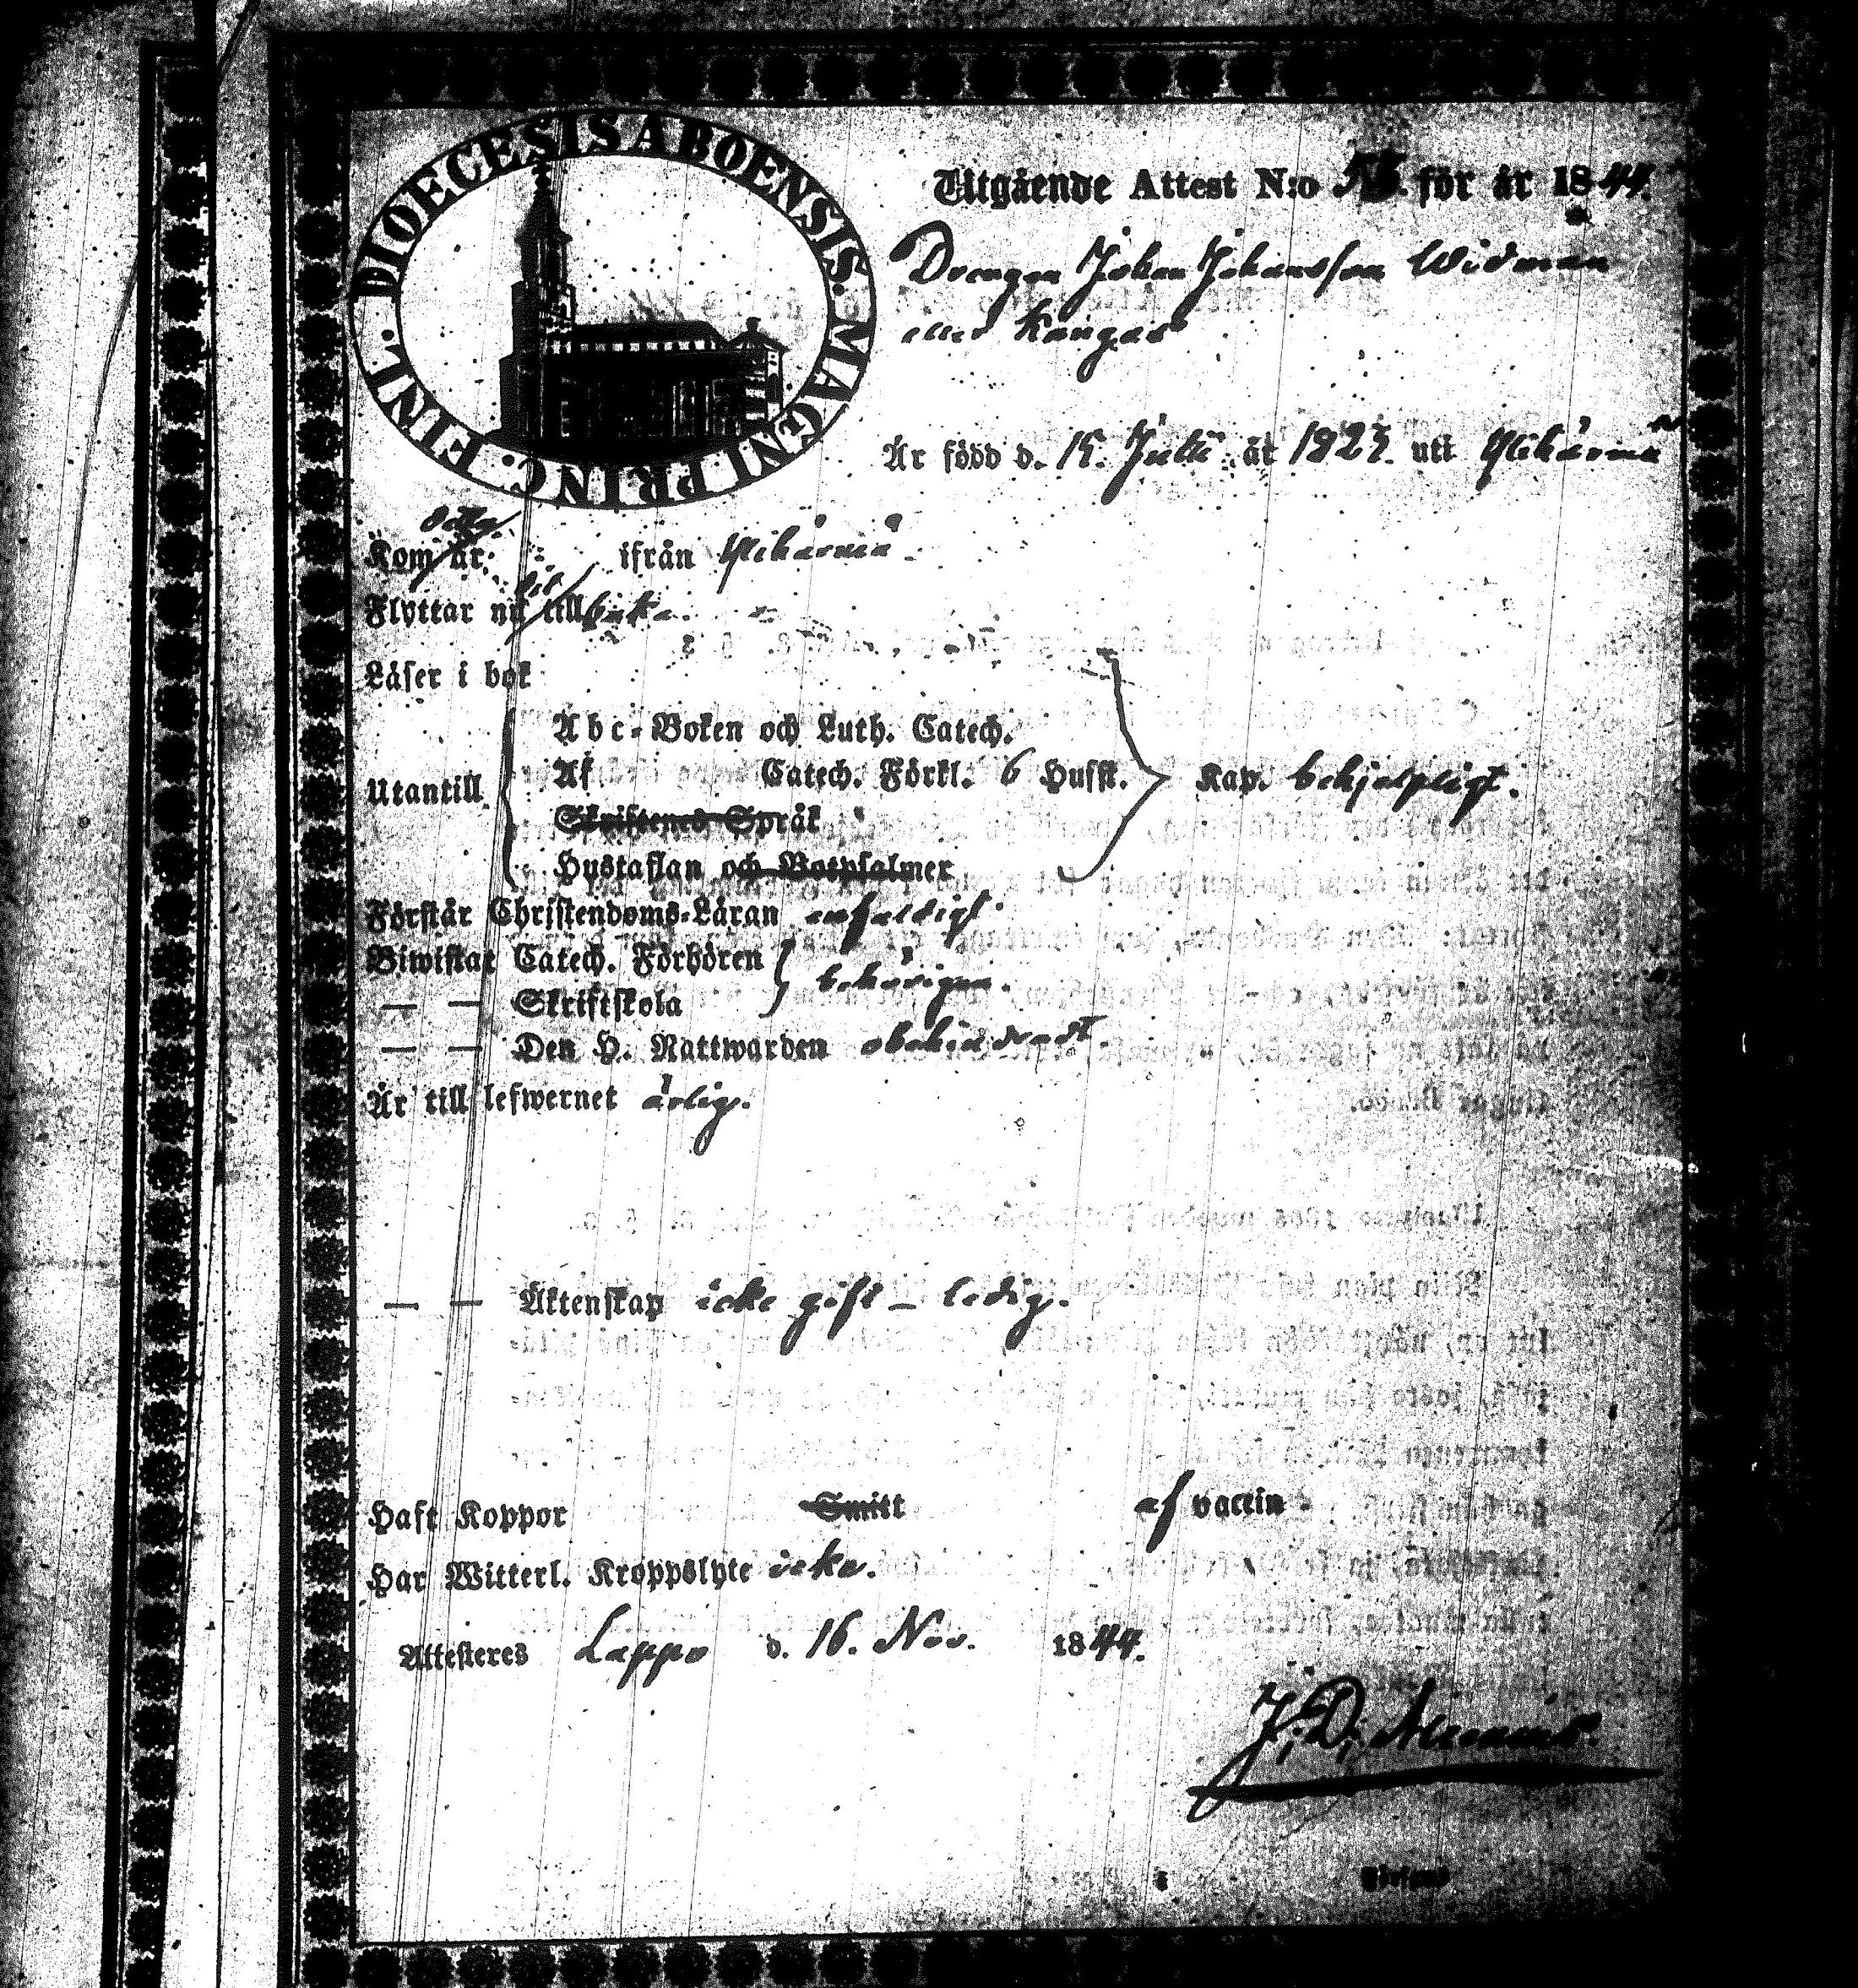 DIOECESIS ABOENSIS. MAGNI PRINC. FINL.
Utgående Attest N:o för år 1844.
Drengen Johan Johansson Widman
eller Kangas
Är född d. 15. Julii år 182 uti Ylihärmä
Kom år ifrån Ylihärmä
Flyttar nu till baka.
Läser i bok
Abc-Boken och Luth. Catech.
Utantill Af Catech. Förkl. 6 Husst. Kap. behjelpligt.
Skriftenes Språk
Hustaflan och Botpsalmer
Förstår Christendoms-Läran enfaldigt.
Biwistat Catech. Förhören
behörigen.
— — Skriftskola
— — Den H. Nattwarden obehindradt.
Är till lefwernet ärlig.
— — Äktenskap icke gift – ledig.
Haft Koppor Smitt af vaccin
Har Witterl. Kroppslyte icke.
Attesteres Lappo d. 16. Nov. 1844.
J. D. Alcenius.